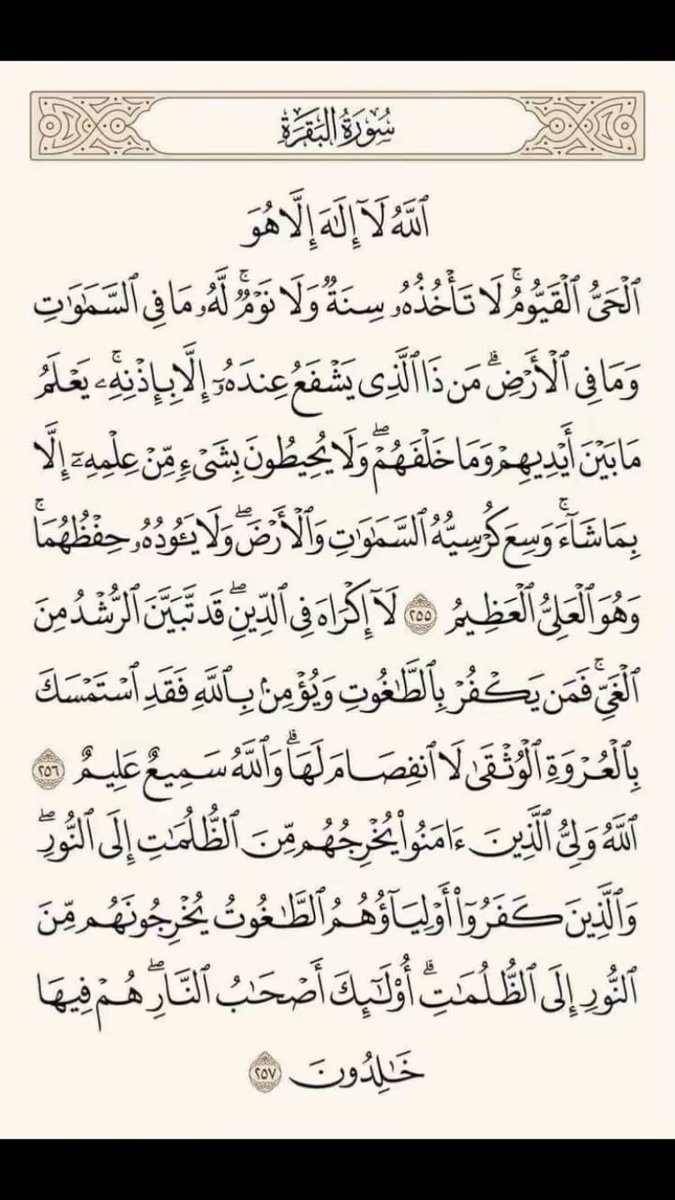 سُورَةُ البَقَرَةِ
ٱللَّهُ لَآ إِلَٰهَ إِلَّا هُوَ
ٱلْحَىُّ ٱلْقَيُّومُ ۚ لَا تَأْخُذُهُۥ سِنَةٌ وَلَا نَوْمٌ ۚ لَّهُۥ مَا فِى ٱلسَّمَٰوَٰتِ
وَمَا فِى ٱلْأَرْضِ ۗ مَن ذَا ٱلَّذِى يَشْفَعُ عِندَهُۥٓ إِلَّا بِإِذْنِهِۦ ۚ يَعْلَمُ
مَا بَيْنَ أَيْدِيهِمْ وَمَا خَلْفَهُمْ ۖ وَلَا يُحِيطُونَ بِشَىْءٍ مِّنْ عِلْمِهِۦٓ إِلَّا
بِمَا شَآءَ ۚ وَسِعَ كُرْسِيُّهُ ٱلسَّمَٰوَٰتِ وَٱلْأَرْضَ ۖ وَلَا يَـُٔودُهُۥ حِفْظُهُمَا ۚ
وَهُوَ ٱلْعَلِىُّ ٱلْعَظِيمُ ٢٥٥ لَآ إِكْرَاهَ فِى ٱلدِّينِ ۖ قَد تَّبَيَّنَ ٱلرُّشْدُ مِنَ
ٱلْغَىِّ ۚ فَمَن يَكْفُرْ بِٱلطَّٰغُوتِ وَيُؤْمِنۢ بِٱللَّهِ فَقَدِ ٱسْتَمْسَكَ
بِٱلْعُرْوَةِ ٱلْوُثْقَىٰ لَا ٱنفِصَامَ لَهَا ۗ وَٱللَّهُ سَمِيعٌ عَلِيمٌ ٢٥٦
ٱللَّهُ وَلِىُّ ٱلَّذِينَ ءَامَنُوا۟ يُخْرِجُهُم مِّنَ ٱلظُّلُمَٰتِ إِلَى ٱلنُّورِ ۖ
وَٱلَّذِينَ كَفَرُوٓا۟ أَوْلِيَآؤُهُمُ ٱلطَّٰغُوتُ يُخْرِجُونَهُم مِّنَ
ٱلنُّورِ إِلَى ٱلظُّلُمَٰتِ ۗ أُو۟لَٰٓئِكَ أَصْحَٰبُ ٱلنَّارِ ۖ هُمْ فِيهَا
خَٰلِدُونَ ٢٥٧